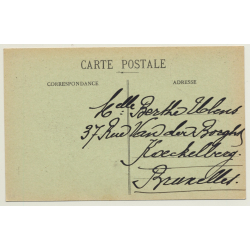 CARTE POSTALE
CORRESPONDANCE
ADRESSE
Melle Berthe Ulens
37 Rue Van der Borght
Koeckelberg
Bruxelles.